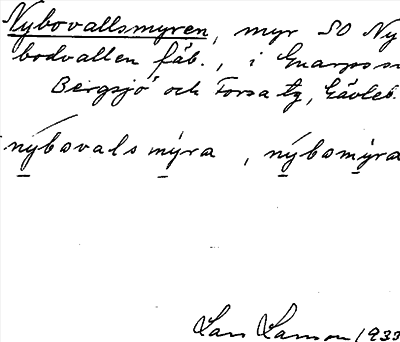 Nybovallsmyren, myr SO Ny
bodvallen fäb., i Gnarps sn
Bergsjö och Forsa tg, Gävleb.
nýbovals mýra, nýbomýra
Lars Larsson 1933